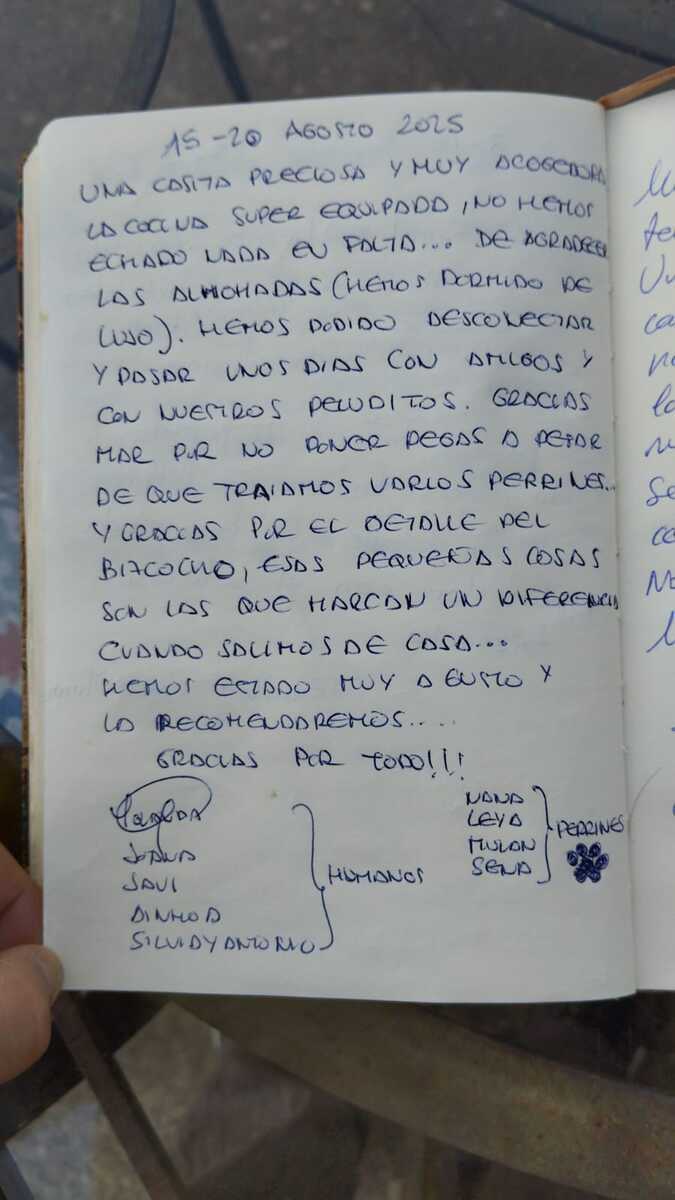 15-20 AGOSTO 2025
UNA CASITA PRECIOSA Y MUY ACOGEDORA
LA COCINA SUPER EQUIPADA, NO HEMOS
ECHADO NADA EN FALTA... DE AGRADECER
LAS ALMOHADAS (HEMOS DORMIDO DE
LUJO). HEMOS PODIDO DESCONECTAR
Y PASAR UNOS DIAS CON AMIGOS Y
CON NUESTROS PELUDITOS. GRACIAS
MAR POR NO PONER PEGAS A PESAR
DE QUE TRAIAMOS VARIOS PERRINES...
Y GRACIAS POR EL DETALLE DEL
BIZCOCHO, ESAS PEQUEÑAS COSAS
SON LAS QUE MARCAN UN DIFERENCIA
CUANDO SALIMOS DE CASA...
HEMOS ESTADO MUY A GUSTO Y
LA RECOMENDAREMOS....
GRACIAS POR TODO!!!
JOANA
SAUL
AINHOA
SILVIA Y ANTONIO
HUMANOS
NANA
LEYA
MULAN
SENA
PERRINES